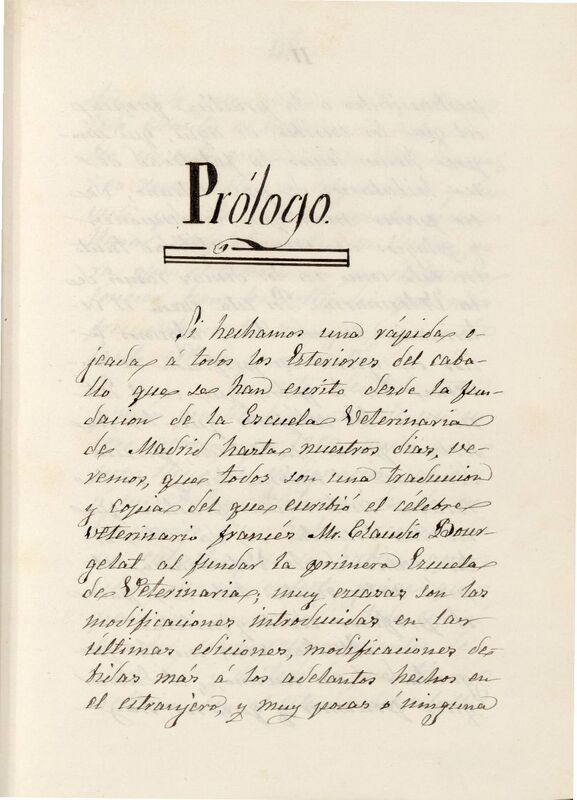 Prólogo.
Si hechamos una rápida o-
jeada á todos los Esteriores del caba-
llo que se han escrito desde la fun-
dacion de la Escuela Veterinaria
de Madrid hasta nuestros dias, ve-
remos, que todos son una traducion
y copia del que escribió el célebre
veterinario francés Mr. Claudio Bour-
gelat al fundar la primera Escuela
de Veterinaria; muy escasas son las
modificaciones introducidas en las
últimas ediciones, modificaciones de-
bidas más á los adelantos hechos en
el estranjero, y muy pocas ó ninguna